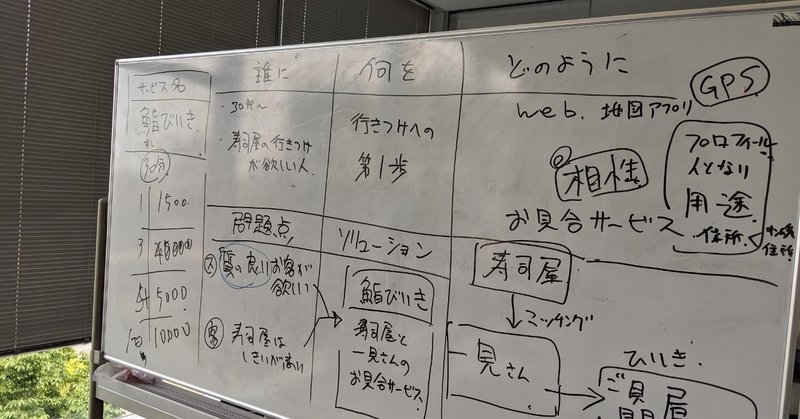 サービス名
鮨びいき
30分
1 1500
3
5000
10000
誰に
・30代〜
・寿司屋の行きつけ
が欲しい人
何を
行きつけへの
第1歩
どのように
GPS
web. 地図アプリ
相性
お見合サービス
プロフィール
人となり
用途
・住所
住所
問題点
質の良いお客が
欲しい
客 寿司屋は
しきいが高い
ソリューション
鮨びいき
寿司屋と
一見さんの
お見合サービス
寿司屋
マッチング
一見さん
ひいき
ご贔屓